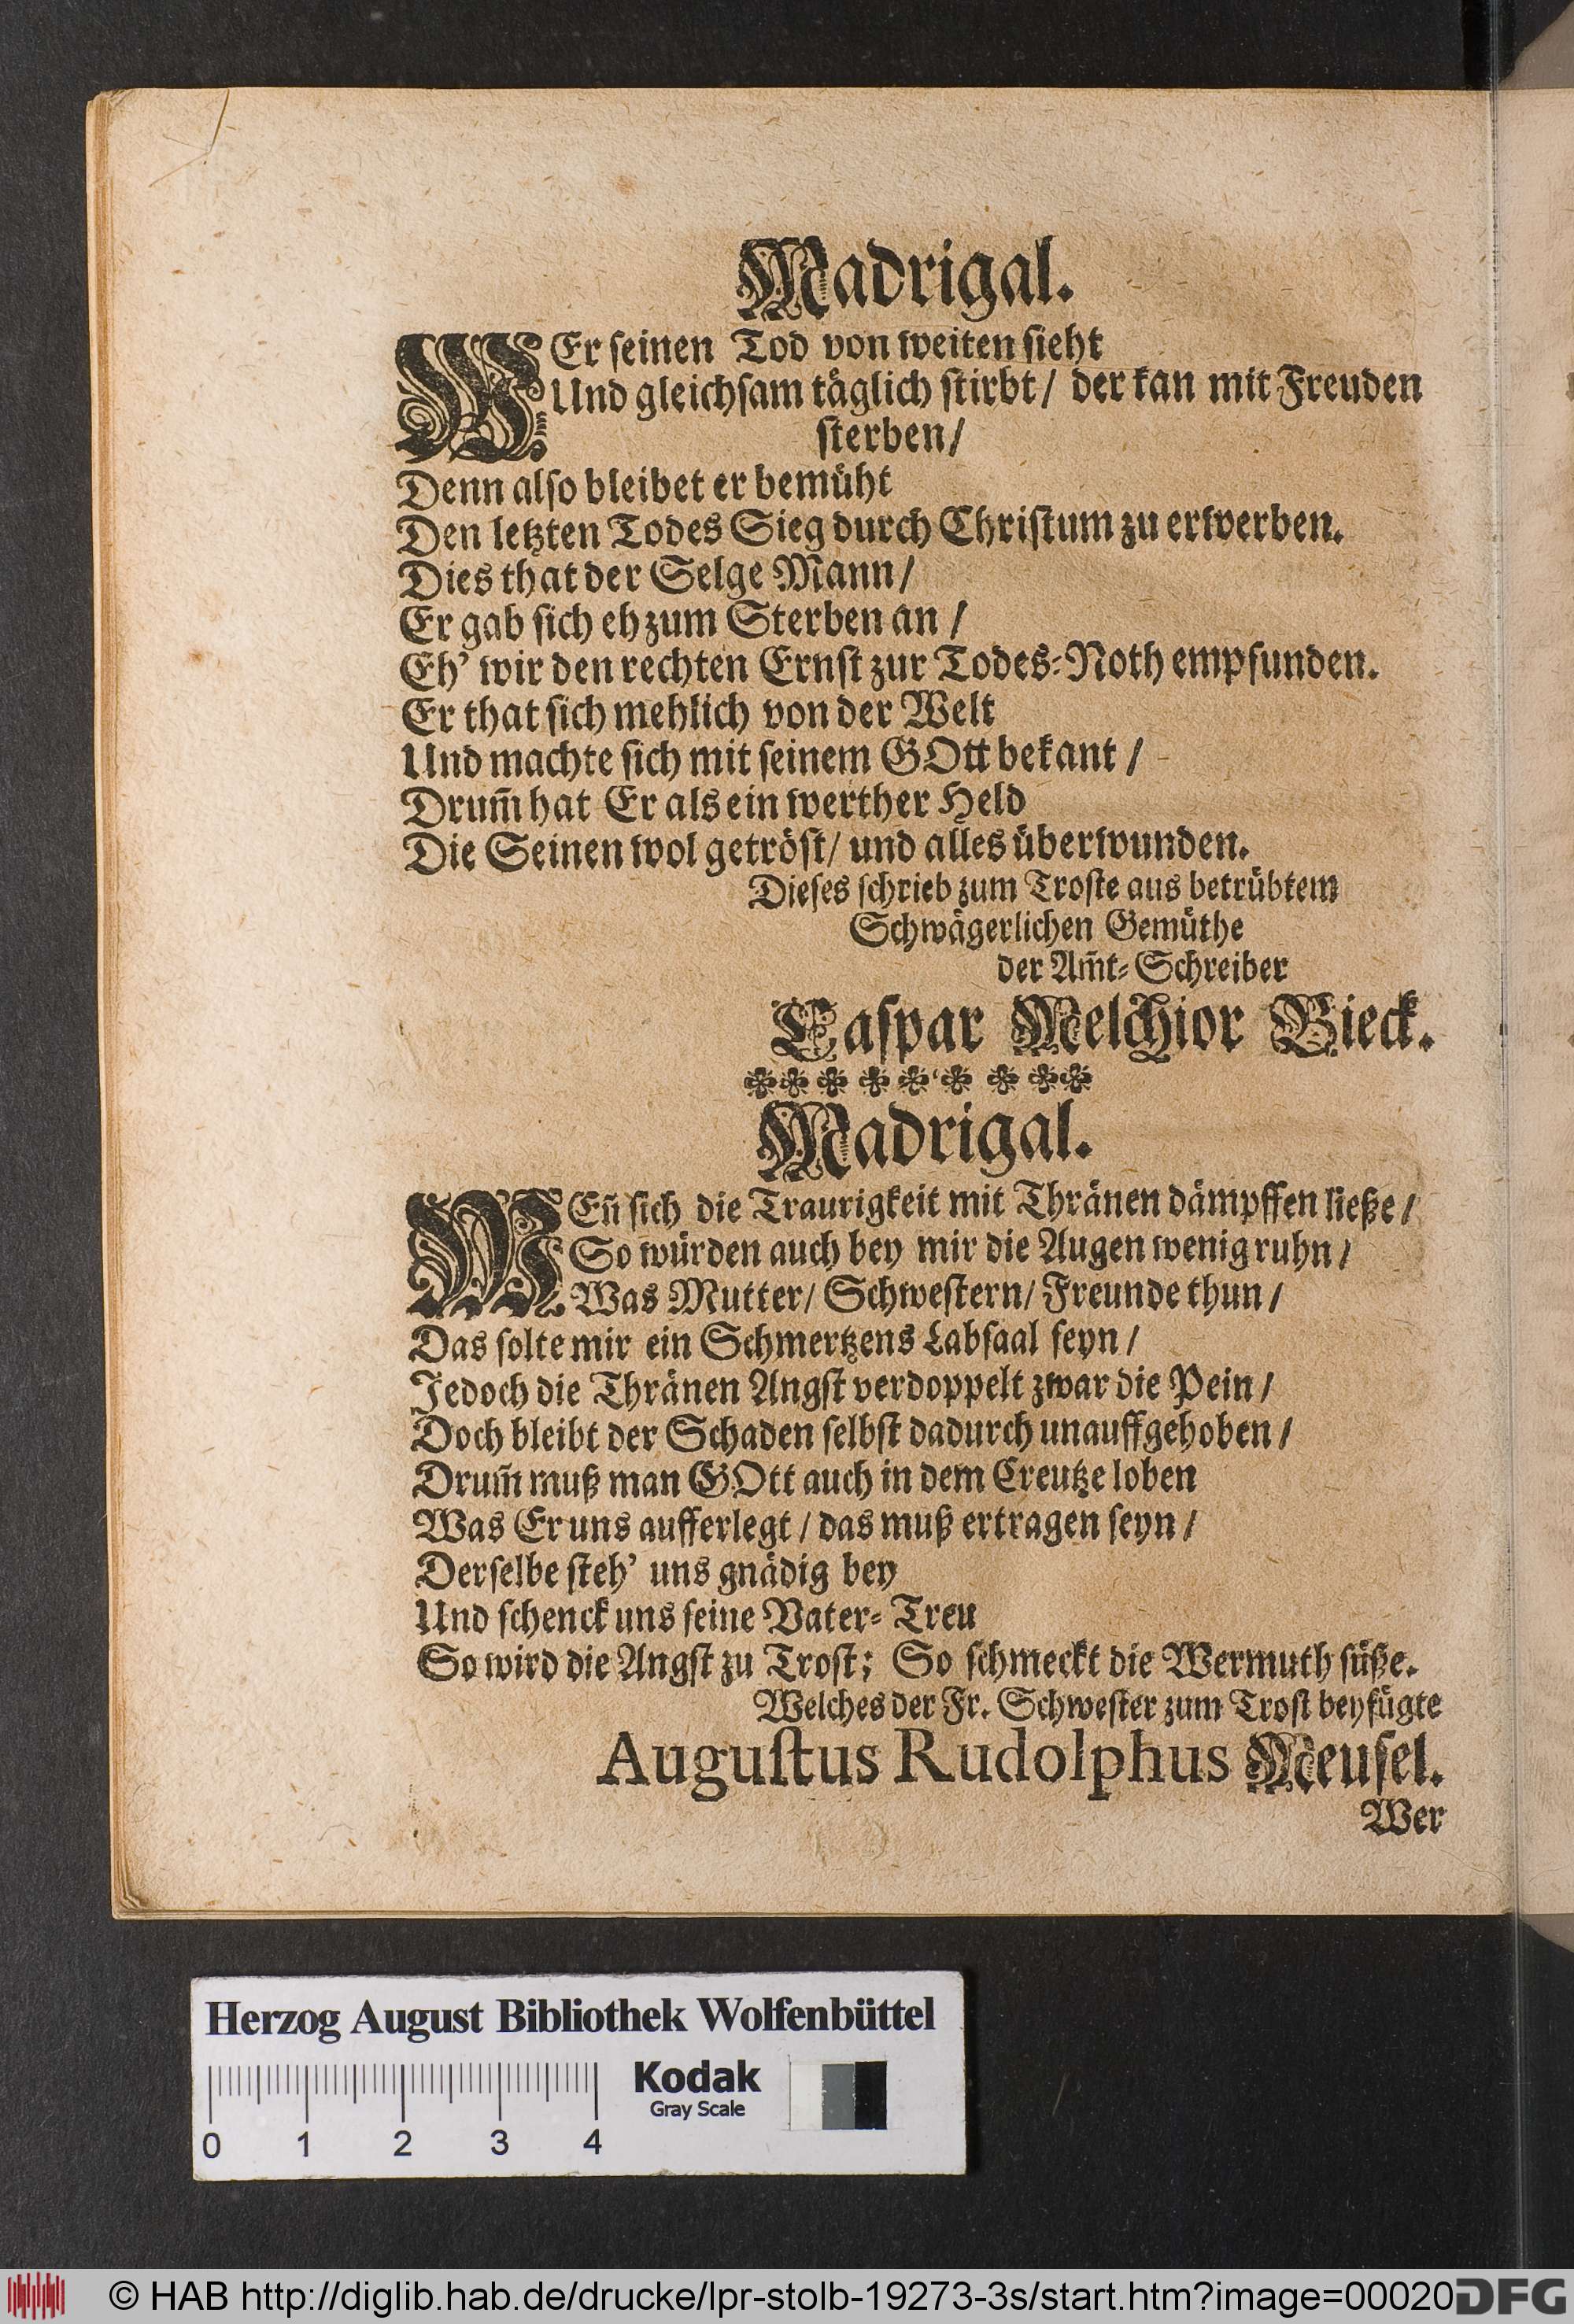 Madrigal.
WEr seinen Tod von weiten sieht
Und gleichsam täglich stirbt / der kan mit Freuden
sterben /
Denn also bleibet er bemüht
Den letzten Todes Sieg durch Christum zu erwerben.
Dies that der Selge Mann /
Er gab sich eh zum Sterben an /
Eh' wir den rechten Ernst zur Todes-Noth empfunden.
Er that sich mehlich von der Welt
Und machte sich mit seinem GOtt bekant /
Drum̄ hat Er als ein werther Held
Die Seinen wol getröst / und alles überwunden.
Dieses schrieb zum Troste aus betrübtem
Schwägerlichen Gemüthe
der Am̄t-Schreiber
Caspar Melchior Bieck.
Madrigal.
WEn̄ sich die Traurigkeit mit Thränen dämpffen ließe /
So würden auch bey mir die Augen wenig ruhn /
Was Mutter / Schwestern / Freunde thun /
Das solte mir ein Schmertzens Labsaal seyn /
Jedoch die Thränen Angst verdoppelt zwar die Pein /
Doch bleibt der Schaden selbst dadurch unauffgehoben /
Drum̄ muß man GOtt auch in dem Creutze loben
Was Er uns aufferlegt / das muß ertragen seyn /
Derselbe steh' uns gnädig bey
Und schenck uns seine Vater-Treu
So wird die Angst zu Trost; So schmeckt die Wermuth süße.
Welches der Fr. Schwester zum Trost beyfügte
Augustus Rudolphus Meusel.
Wer
Herzog August Bibliothek Wolfenbüttel
Kodak
Gray Scale
0 1 2 3 4
© HAB http://diglib.hab.de/drucke/lpr-stolb-19273-3s/start.htm?image=00020 DFG